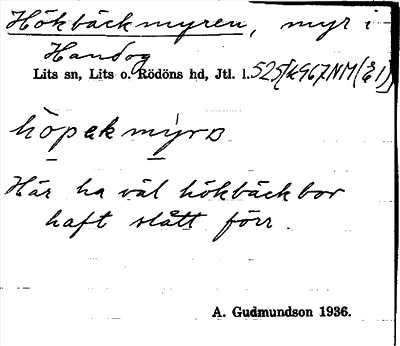 Hökbäckmyren, myr i
Handog
Lits sn, Lits o. Rödöns hd, Jtl. l.
höpekmýrɒ
Här ha väl hökbäckbor
haft slått förr.
A. Gudmundson 1936.